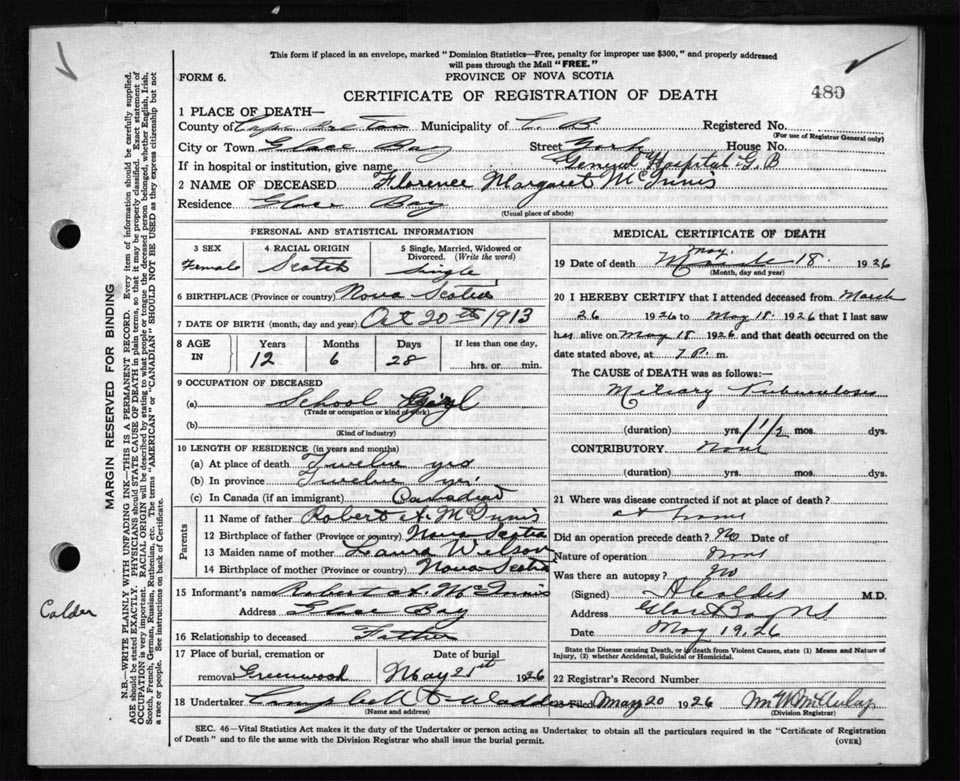 This form if placed in an envelope, marked "Dominion Statistics—Free, penalty for improper use $300," and properly addressed
will pass through the Mail "FREE."
FORM 6.
PROVINCE OF NOVA SCOTIA
CERTIFICATE OF REGISTRATION OF DEATH
480
1 PLACE OF DEATH—
County of Cape Breton Municipality of C. B. Registered No.
(For use of Registrar General only)
City or Town Glace Bay Street York House No.
If in hospital or institution, give name General Hospital G. B
2 NAME OF DECEASED Florence Margaret McInnis
Residence Glace Bay
(Usual place of abode)
PERSONAL AND STATISTICAL INFORMATION
3 SEX
Female
4 RACIAL ORIGIN
Scotch
5 Single, Married, Widowed or
Divorced. (Write the word)
Single
6 BIRTHPLACE (Province or country) Nova Scotia
7 DATE OF BIRTH (month, day and year) Oct 20th 1913
8 AGE
IN
Years
12
Months
6
Days
28
If less than one day,
hrs. or min.
9 OCCUPATION OF DECEASED
(a) School Girl
(Trade or occupation or kind of work)
(b)
(Kind of industry)
10 LENGTH OF RESIDENCE (in years and months)
(a) At place of death Twelve yrs
(b) In province Twelve yrs
(c) In Canada (if an immigrant) Canadian
Parents
11 Name of father Robert A. McInnis
12 Birthplace of father (Province or country) Nova Scotia
13 Maiden name of mother Laura Wilson
14 Birthplace of mother (Province or country) Nova Scotia
15 Informant's name Robert A. McInnis
Address Glace Bay
16 Relationship to deceased Father
17 Place of burial, cremation or Date of burial
removal Greenwood May 21st 1926
18 Undertaker Campbell &
(Name and address)
MEDICAL CERTIFICATE OF DEATH
May
19 Date of death 18. 1926
(Month, day and year)
20 I HEREBY CERTIFY that I attended deceased from March
26 1926 to May 18. 1926 that I last saw
her alive on May 18 1926 and that death occurred on the
date stated above, at 7 P. m.
The CAUSE of DEATH was as follows:—
Miliary Tuberculosis
(duration) yrs. 1 1/2 mos. dys.
CONTRIBUTORY None
(duration) yrs. mos. dys.
21 Where was disease contracted if not at place of death?
at home
Did an operation precede death? No Date of
Nature of operation None
Was there an autopsy? No
(Signed) Calder M.D.
Address Glace Bay N S
Date May 19. 26
State the Disease causing Death, or in death from Violent Causes, state (1) Means and Nature of
Injury, (2) whether Accidental, Suicidal or Homicidal.
22 Registrar's Record Number
23 Filed May 20 1926
(Division Registrar)
SEC. 46—Vital Statistics Act makes it the duty of the Undertaker or person acting as Undertaker to obtain all the particulars required in the "Certificate of Registration
of Death" and to file the same with the Division Registrar who shall issue the burial permit.
(OVER)
MARGIN RESERVED FOR BINDING
N.B.—WRITE PLAINLY WITH UNFADING INK—THIS IS A PERMANENT RECORD. Every item of information should be carefully supplied.
AGE should be stated EXACTLY. PHYSICIANS should STATE CAUSE OF DEATH in plain terms, so that it may be properly classified. Exact statement of
OCCUPATION is very important. RACIAL ORIGIN will be described by stating to what people or tongue the deceased person belonged, whether English, Irish,
Scotch, French, German, Russian, Ruthenian, etc. The terms "AMERICAN" or "CANADIAN" SHOULD NOT BE USED as they express citizenship but not
a race or people. See instructions on back of Certificate.
Calder